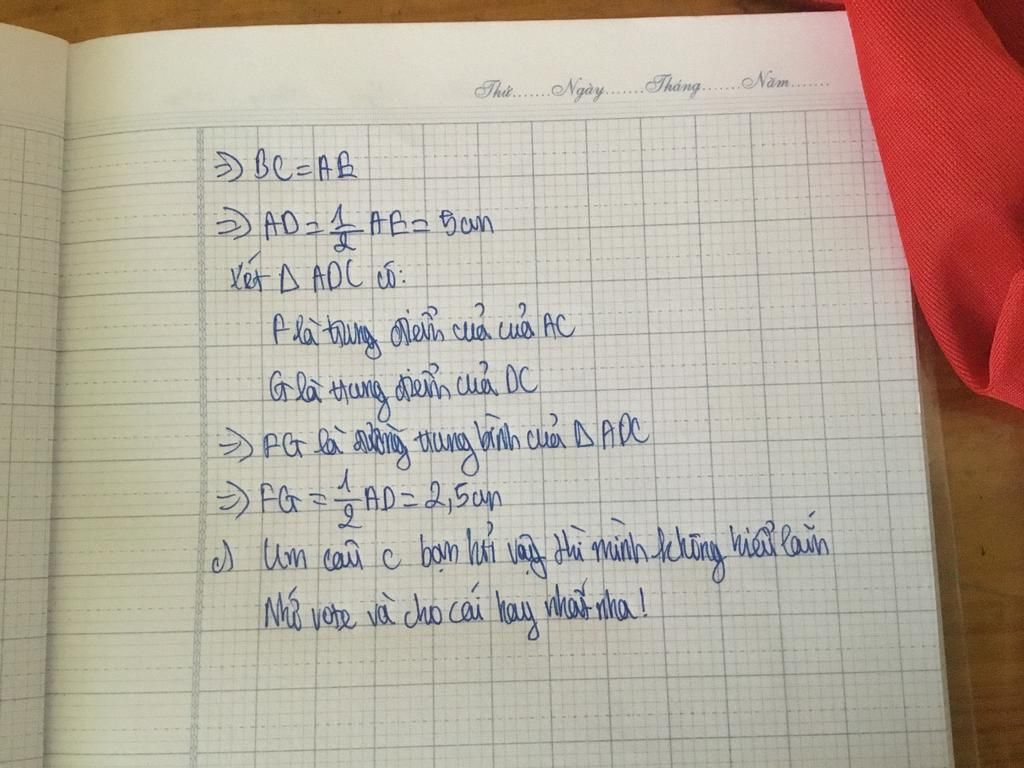 Thứ.......Ngày.......Tháng.......Năm.......
=> BC = AB
=> AD = 1/2 AB = 5cm
Xét Δ ADC có:
F là trung điểm của của AC
G là trung điểm của DC
=> FG là đường trung bình của Δ ADC
=> FG = 1/2 AD = 2,5cm
c) Um câu c bạn hỏi vậy thì mình không hiểu lắm
Nhớ vote và cho cái hay nhất nha!